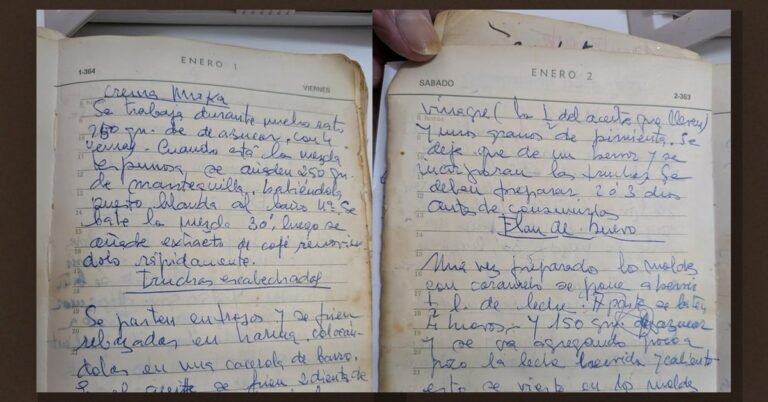 ENERO 1
1-364
VIERNES
Crema Moka
Se trabaja durante mucho rato
250 gr. de de azucar, con 4
yemas. Cuando está la mezcla
espumosa se añaden 250 gr.
de mantequilla, batiéndola
puesto blanda al baño Mª. Se
bate la mezcla 30', luego se
añade extracto de café removien
dolo rápidamente.
Truchas escabechadas
Se parten en trozos y se frien
rebozadas en harina, colocan
dolas en una cacerola de barro.
el aceite se frien 2 dientes de
ENERO 2
SABADO
2-363
vinagre (la ½ del aceite que lleven)
y unos granos de pimienta. Se
deja que de un hervor y se
incorporan las truchas. Se
deben preparar 2 ó 3 dias
antes de consumirlas
Flan de huevo
Una vez preparado los moldes
con caramelo se pone a hervir
l. de leche. A parte se baten
huevos y 150 gr. de azucar
y se va agregando poco a
poco la leche hervida y caliente
esto se vierte en los moldes